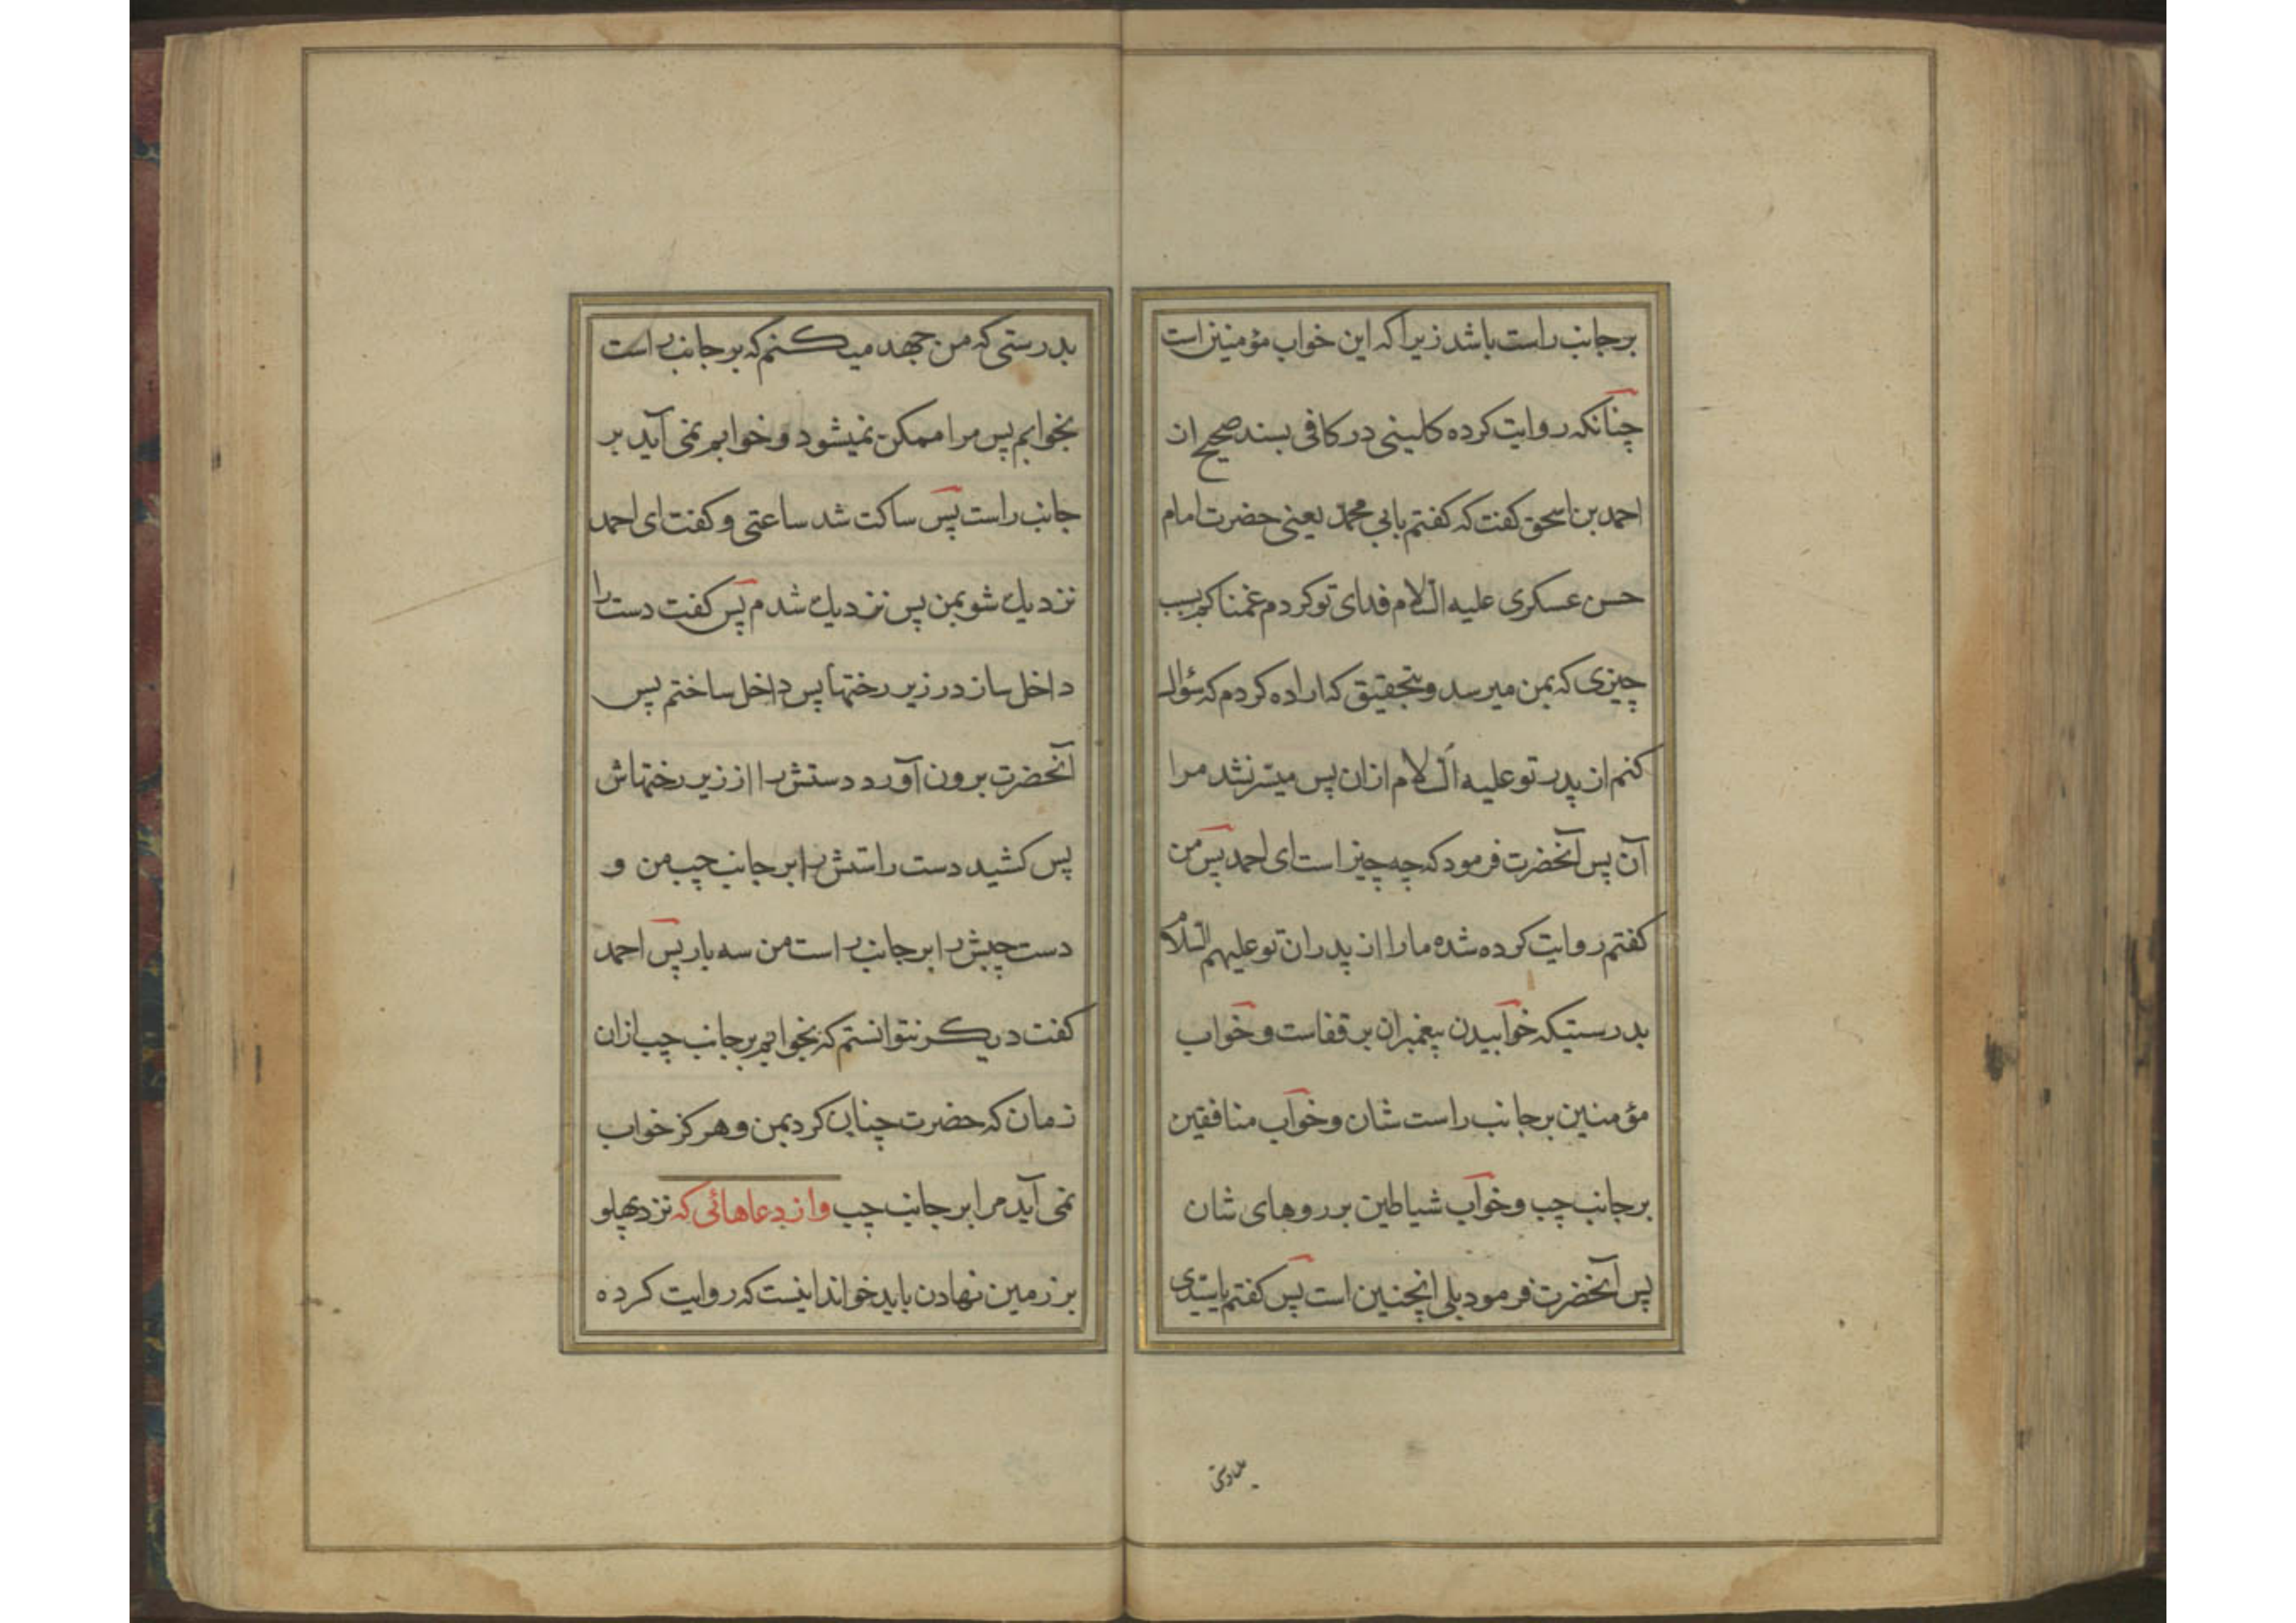 برجانب راست باشد زیرا که این خواب مؤمنین است
چنانکه روایت کرده کلینی در کافی بسند صحیح از
احمد بن اسحق گفت که گفتم بابی محمد یعنی حضرت امام
حسن عسکری علیه السلام فدای تو کردم غمناکم بسبب
چیزی که بمن میرسد و بتحقیق که اراده کردم که سؤال
کنم از پدر تو علیه السلام ازان پس میسر نشد مرا
آن پس آنحضرت فرمود که چه چیز است ای احمد پس من
کفتم روایت کرده شده ما را از پدران تو علیهم السلام
بدرستیکه خوابیدن پیغمبران بر قفاست و خواب
مؤمنین برجانب راست شان و خواب منافقین
برجانب چپ و خواب شیاطین بر روهای شان
پس آنحضرت فرمود بلی اینچنین است پس کفتم یا سیدی
بدرستی
بدرستی که من جهد میکنم که بر جانب راست
بخوابم پس مرا ممکن نمیشود و خوابم نمی آید بر
جانب راست پس ساکت شد ساعتی و کفت ای احمد
نزدیک شو بمن پس نزدیک شدم پس کفت دست را
داخل ساز در زیر رختها پس داخل ساختم پس
آنحضرت برون آورد دستش را از زیر رختهاش
پس کشید دست راستش را بر جانب چپ من و
دست چپش را بر جانب راست من سه بار پس احمد
کفت دیکر نتوانستم که بخوابم بر جانب چپ ازان
زمان که حضرت چنان کرد بمن و هرکز خواب
نمی آید مرا بر جانب چپ و از دعاهائی که نزد پهلو
بر زمین نهادن باید خواند اینست که روایت کرده